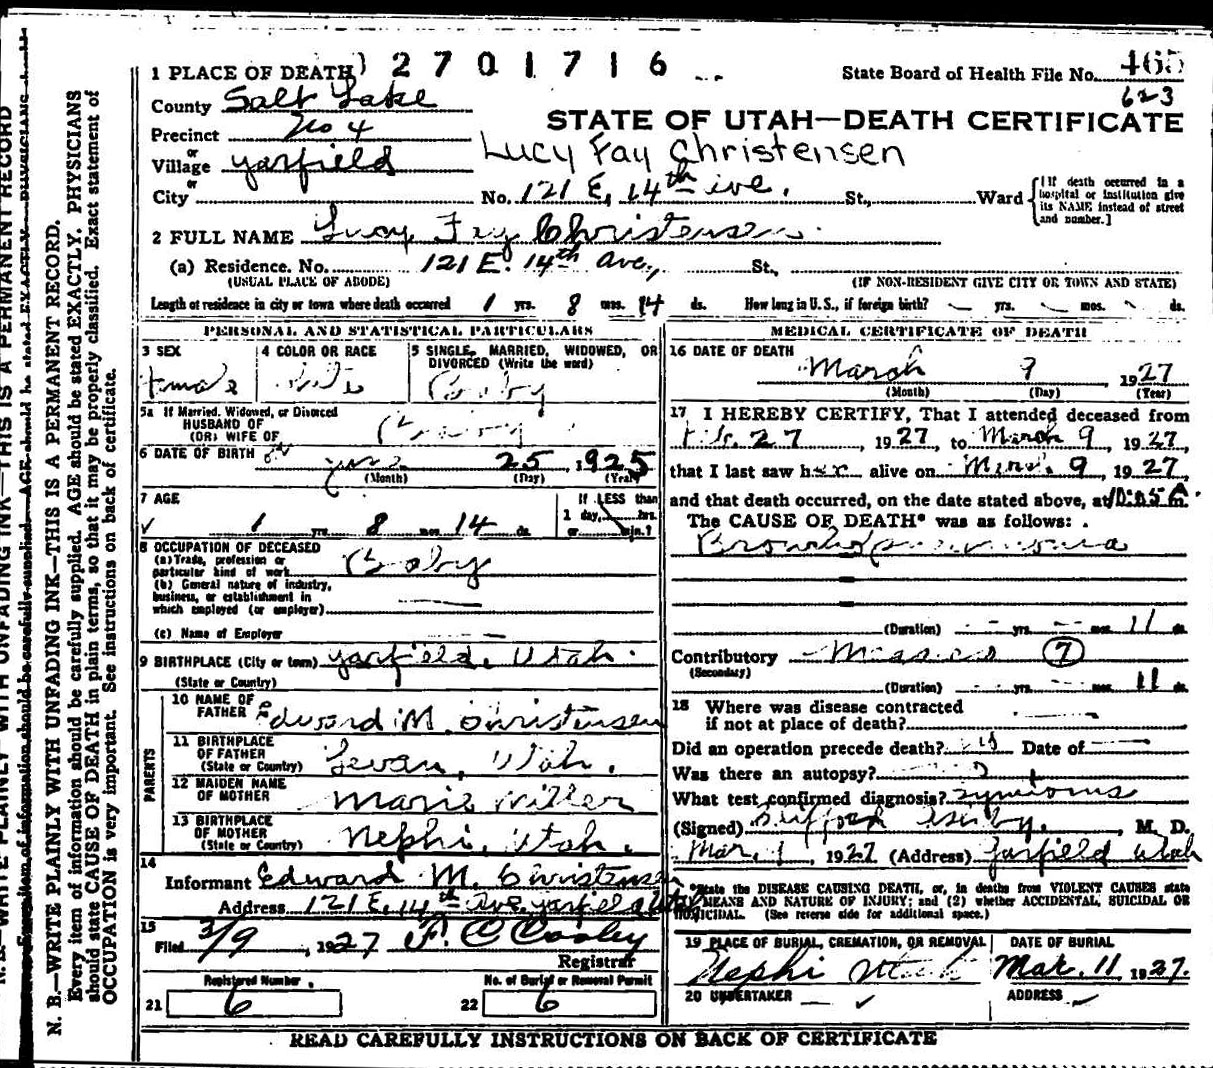 1 PLACE OF DEATH) 2701716
State Board of Health File No. 465
623
County Salt Lake
STATE OF UTAH—DEATH CERTIFICATE
Precinct No 4
Lucy Fay Christensen
or
Village Garfield
or
City No. 121 E. 14th Ave. St., Ward
[If death occurred in a hospital or institution give its NAME instead of street and number.]
2 FULL NAME Lucy Fay Christensen
(a) Residence. No. 121 E. 14th Ave, St.,
(USUAL PLACE OF ABODE) (IF NON-RESIDENT GIVE CITY OR TOWN AND STATE)
Length of residence in city or town where death occurred 1 yrs. 8 mos. 14 ds. How long in U.S., if foreign birth? yrs. mos. ds.
PERSONAL AND STATISTICAL PARTICULARS
3 SEX Female
4 COLOR OR RACE White
5 SINGLE, MARRIED, WIDOWED, OR DIVORCED (Write the word) Baby
5a If Married, Widowed, or Divorced
HUSBAND OF
(OR) WIFE OF
6 DATE OF BIRTH June 25, 1925
(Month) (Day) (Year)
7 AGE 1 yrs. 8 mos. 14 ds.
If LESS than
1 day, hrs.
or min.?
8 OCCUPATION OF DECEASED
(a) Trade, profession or
particular kind of work Baby
(b) General nature of industry,
business, or establishment in
which employed (or employer)
(c) Name of Employer
9 BIRTHPLACE (City or town) Garfield, Utah.
(State or Country)
PARENTS
10 NAME OF
FATHER Edward M. Christensen
11 BIRTHPLACE
OF FATHER
(State or Country) Levan, Utah.
12 MAIDEN NAME
OF MOTHER Marie Miller
13 BIRTHPLACE
OF MOTHER
(State or Country) Nephi, Utah.
14
Informant Edward M. Christensen
Address 121 E. 14th Ave, Garfield Utah
15
Filed 3/9, 1927 F. C. Cooley
Registrar
Registered Number
21 6
No. of Burial or Removal Permit
22 6
MEDICAL CERTIFICATE OF DEATH
16 DATE OF DEATH
March 9, 1927
(Month) (Day) (Year)
17 I HEREBY CERTIFY, That I attended deceased from
27, 1927, to March 9, 1927,
that I last saw her alive on 9, 1927,
and that death occurred, on the date stated above, at m.
The CAUSE OF DEATH* was as follows:
Bronchopneumonia
(Duration) yrs. mos. 11 ds.
Contributory Measles 7
(Secondary)
(Duration) yrs. mos. 11 ds.
18 Where was disease contracted
if not at place of death?
Did an operation precede death? Date of
Was there an autopsy?
What test confirmed diagnosis?
(Signed) M. D.
1927 (Address) Garfield Utah
*State the DISEASE CAUSING DEATH, or, in deaths from VIOLENT CAUSES state
MEANS AND NATURE OF INJURY; and (2) whether ACCIDENTAL, SUICIDAL OR
HOMICIDAL. (See reverse side for additional space.)
19 PLACE OF BURIAL, CREMATION, OR REMOVAL
Nephi Utah
DATE OF BURIAL
Mar. 11 1927.
20 UNDERTAKER
ADDRESS
READ CAREFULLY INSTRUCTIONS ON BACK OF CERTIFICATE
N. B.—WRITE PLAINLY WITH UNFADING INK—THIS IS A PERMANENT RECORD.
Every item of information should be carefully supplied. AGE should be stated EXACTLY. PHYSICIANS
should state CAUSE OF DEATH in plain terms, so that it may be properly classified. Exact statement of
OCCUPATION is very important. See instructions on back of certificate.